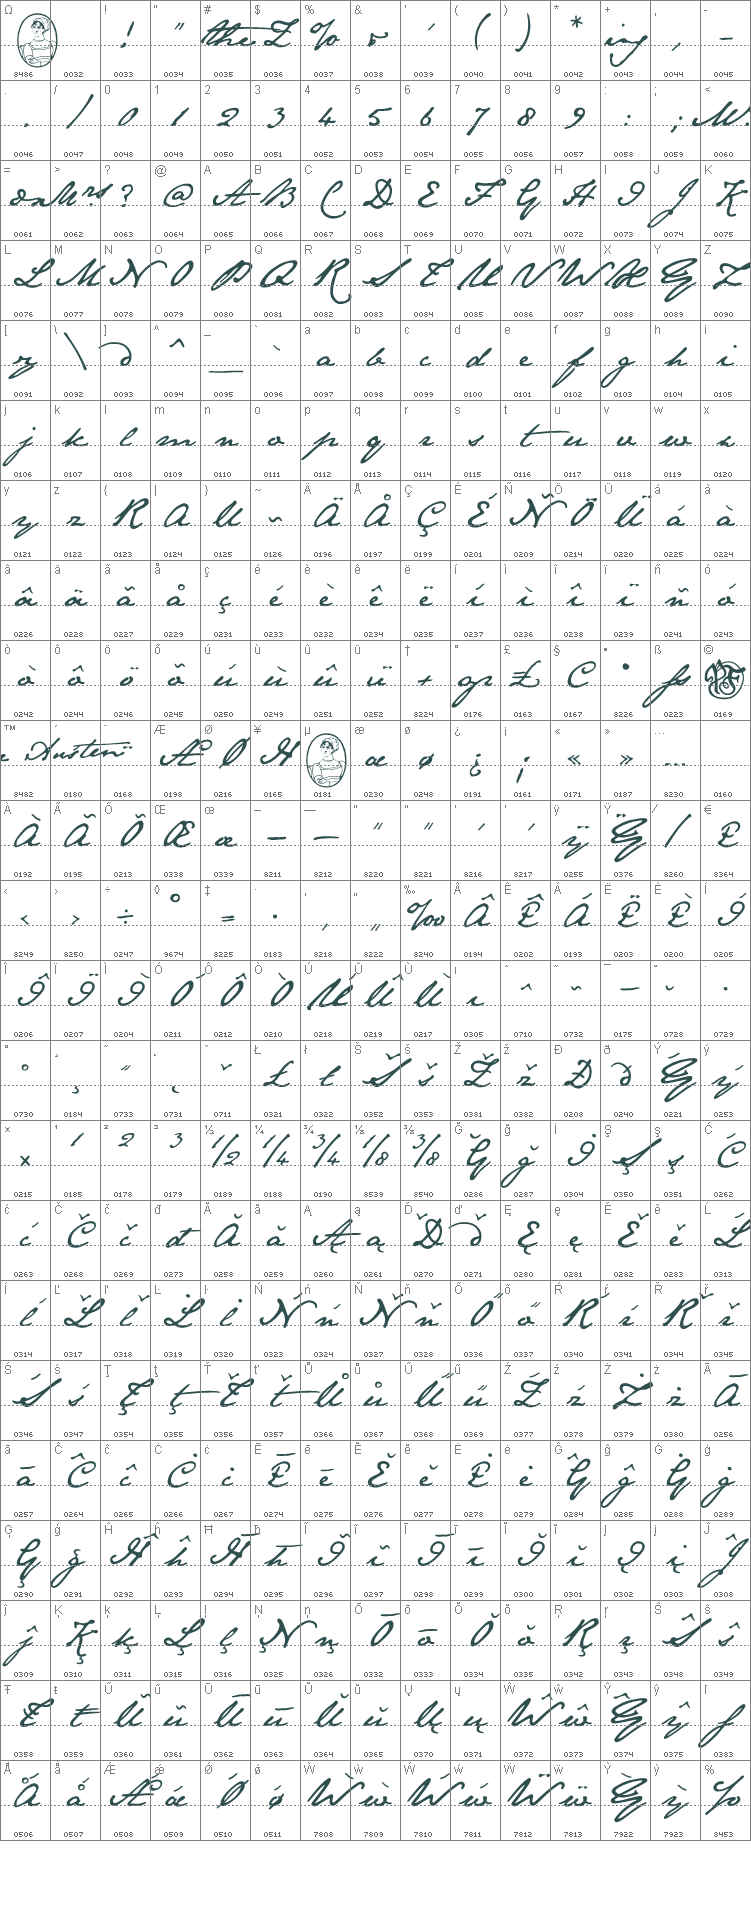 Ω ! " # $ % & ' ( ) * + , -
! " the £ % & ' ( ) * ing , -
8486 0032 0033 0034 0035 0036 0037 0038 0039 0040 0041 0042 0043 0044 0045
. / 0 1 2 3 4 5 6 7 8 9 : ; <
. / 0 1 2 3 4 5 6 7 8 9 : ; M.
0046 0047 0048 0049 0050 0051 0052 0053 0054 0055 0056 0057 0058 0059 0060
= > ? @ A B C D E F G H I J K
on Mrs ? @ A B C D E F G H I J K
0061 0062 0063 0064 0065 0066 0067 0068 0069 0070 0071 0072 0073 0074 0075
L M N O P Q R S T U V W X Y Z
L M N O P Q R S T U V W X Y Z
0076 0077 0078 0079 0080 0081 0082 0083 0084 0085 0086 0087 0088 0089 0090
[ \ ] ^ _ ` a b c d e f g h i
\ ^ _ ` a b c d e f g h i
0091 0092 0093 0094 0095 0096 0097 0098 0099 0100 0101 0102 0103 0104 0105
j k l m n o p q r s t u v w x
j k l m n o p q r s t u v w x
0106 0107 0108 0109 0110 0111 0112 0113 0114 0115 0116 0117 0118 0119 0120
y z { | } ~ Ä Å Ç É Ñ Ö Ü á à
y z R A U ~ Ä Å Ç É Ñ Ö Ü á à
0121 0122 0123 0124 0125 0126 0196 0197 0199 0201 0209 0214 0220 0225 0224
â ä ã å ç é è ê ë í ì î ï ñ ó
â ä ã å ç é è ê ë í ì î ï ñ ó
0226 0228 0227 0229 0231 0233 0232 0234 0235 0237 0236 0238 0239 0241 0243
ò ô ö õ ú ù û ü † ° £ § • ß ©
ò ô ö õ ú ù û ü + £ C • ß
0242 0244 0246 0245 0250 0249 0251 0252 8224 0176 0163 0167 8226 0223 0169
™ ´ ¨ Æ Ø ¥ µ æ ø ¿ ¡ « » …
Austen Æ Ø H æ ø ¿ ¡ « » …
8482 0180 0168 0198 0216 0165 0181 0230 0248 0191 0161 0171 0187 8230 0160
À Ã Õ Œ œ – — " " ' ' ÿ Ÿ ⁄ €
À Ã Õ Œ œ – — " " ' ' ÿ Ÿ /
0192 0195 0213 0338 0339 8211 8212 8220 8221 8216 8217 0255 0376 8260 8364
‹ › ÷ ◊ ‡ · ‚ „ ‰ Â Ê Á Ë È Í
‹ › ÷ = · , „ ‰ Â Ê Á Ë È Í
8249 8250 0247 9674 8225 0183 8218 8222 8240 0194 0202 0193 0203 0200 0205
Î Ï Ì Ó Ô Ò Ú Û Ù ı ˆ ˜ ¯ ˘ ˙
Î Ï Ì Ó Ô Ò Ú Û Ù ı ˆ ˜ ¯ ˘ ˙
0206 0207 0204 0211 0212 0210 0218 0219 0217 0305 0710 0732 0175 0728 0729
˚ ¸ ˝ ˛ ˇ Ł ł Š š Ž ž Ð ð Ý ý
˚ ¸ ˝ ˛ ˇ Ł ł Š š Ž ž Ð ð Ý ý
0730 0184 0733 0731 0711 0321 0322 0352 0353 0381 0382 0208 0240 0221 0253
× ¹ ² ³ ½ ¼ ¾ ⅛ ⅜ Ğ ğ İ Ş ş Ć
× 1 2 3 1/2 1/4 3/4 1/8 3/8 Ğ ğ İ Ş ş Ć
0215 0185 0178 0179 0189 0188 0190 8539 8540 0286 0287 0304 0350 0351 0262
ć Č č đ Ă ă Ą ą Ď ď Ę ę Ě ě Ĺ
ć Č č đ Ă ă Ą ą Ď ď Ę ę Ě ě Ĺ
0263 0268 0269 0273 0258 0259 0260 0261 0270 0271 0280 0281 0282 0283 0313
ĺ Ľ ľ Ŀ ŀ Ń ń Ň ň Ő ő Ŕ ŕ Ř ř
ĺ Ľ ľ Ŀ ŀ Ń ń Ň ň Ő ő Ŕ ŕ Ř ř
0314 0317 0318 0319 0320 0323 0324 0327 0328 0336 0337 0340 0341 0344 0345
Ś ś Ţ ţ Ť ť Ů ů Ű ű Ź ź Ż ż Ā
Ś ś Ţ ţ Ť ť Ů ů Ű ű Ź ź Ż ż Ā
0346 0347 0354 0355 0356 0357 0366 0367 0368 0369 0377 0378 0379 0380 0256
ā Ĉ ĉ Ċ ċ Ē ē Ĕ ĕ Ė ė Ĝ ĝ Ġ ġ
ā Ĉ ĉ Ċ ċ Ē ē Ĕ ĕ Ė ė Ĝ ĝ Ġ ġ
0257 0264 0265 0266 0267 0274 0275 0276 0277 0278 0279 0284 0285 0288 0289
Ģ ģ Ĥ ĥ Ħ ħ Ĩ ĩ Ī ī Ĭ ĭ Į į Ĵ
Ģ ģ Ĥ ĥ Ħ ħ Ĩ ĩ Ī ī Ĭ ĭ Į į Ĵ
0290 0291 0292 0293 0294 0295 0296 0297 0298 0299 0300 0301 0302 0303 0308
ĵ Ķ ķ Ļ ļ Ņ ņ Ō ō Ŏ ŏ Ŗ ŗ Ŝ ŝ
ĵ Ķ ķ Ļ ļ Ņ ņ Ō ō Ŏ ŏ Ŗ ŗ Ŝ ŝ
0309 0310 0311 0315 0316 0325 0326 0332 0333 0334 0335 0342 0343 0348 0349
Ŧ ŧ Ũ ũ Ū ū Ŭ ŭ Ų ų Ŵ ŵ Ŷ ŷ ſ
Ŧ ŧ Ũ ũ Ū ū Ŭ ŭ Ų ų Ŵ ŵ Ŷ ŷ ſ
0358 0359 0360 0361 0362 0363 0364 0365 0370 0371 0372 0373 0374 0375 0383
Ǻ ǻ Ǽ ǽ Ǿ ǿ Ẁ ẁ Ẃ ẃ Ẅ ẅ Ỳ ỳ ℅
Ǻ ǻ Ǽ ǽ Ǿ ǿ Ẁ ẁ Ẃ ẃ Ẅ ẅ Ỳ ỳ ℅
0506 0507 0508 0509 0510 0511 7808 7809 7810 7811 7812 7813 7922 7923 8453